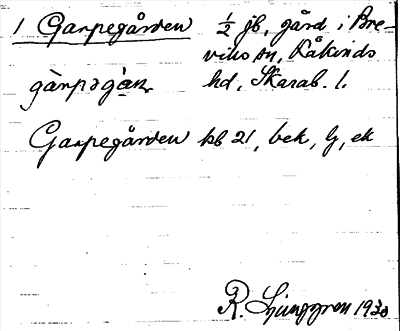 1 Garpegården ½ jb, gård i Bre-
viks sn, Kåkinds
gàrpəgàɳ hd, Skarab. l.
Garpegården kb 21, bek, lj, ek
R. Ljunggren 1930